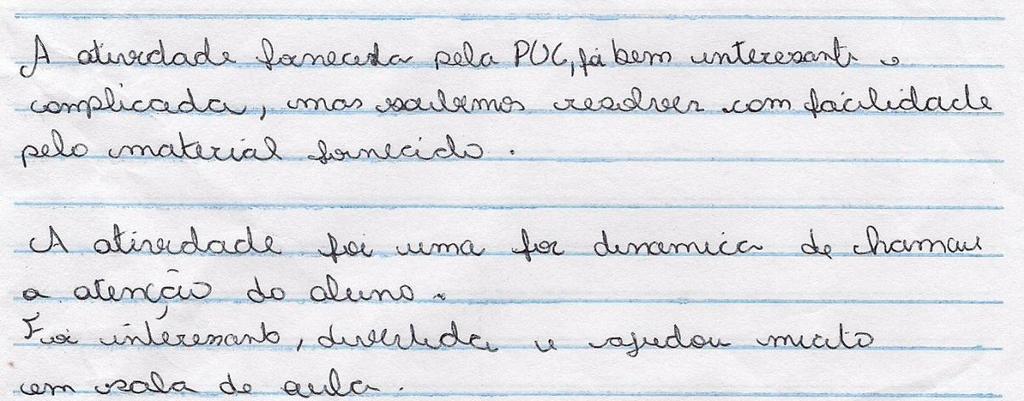 A atividade fornecida pela PUC, foi bem interesante e
complicada, mas soubemos resolver com facilidade
pelo material fornecido.
A atividade foi uma for dinamica de chamar
a atenção do aluno.
Foi interesante, divertida e ajudou muito
em sala de aula.